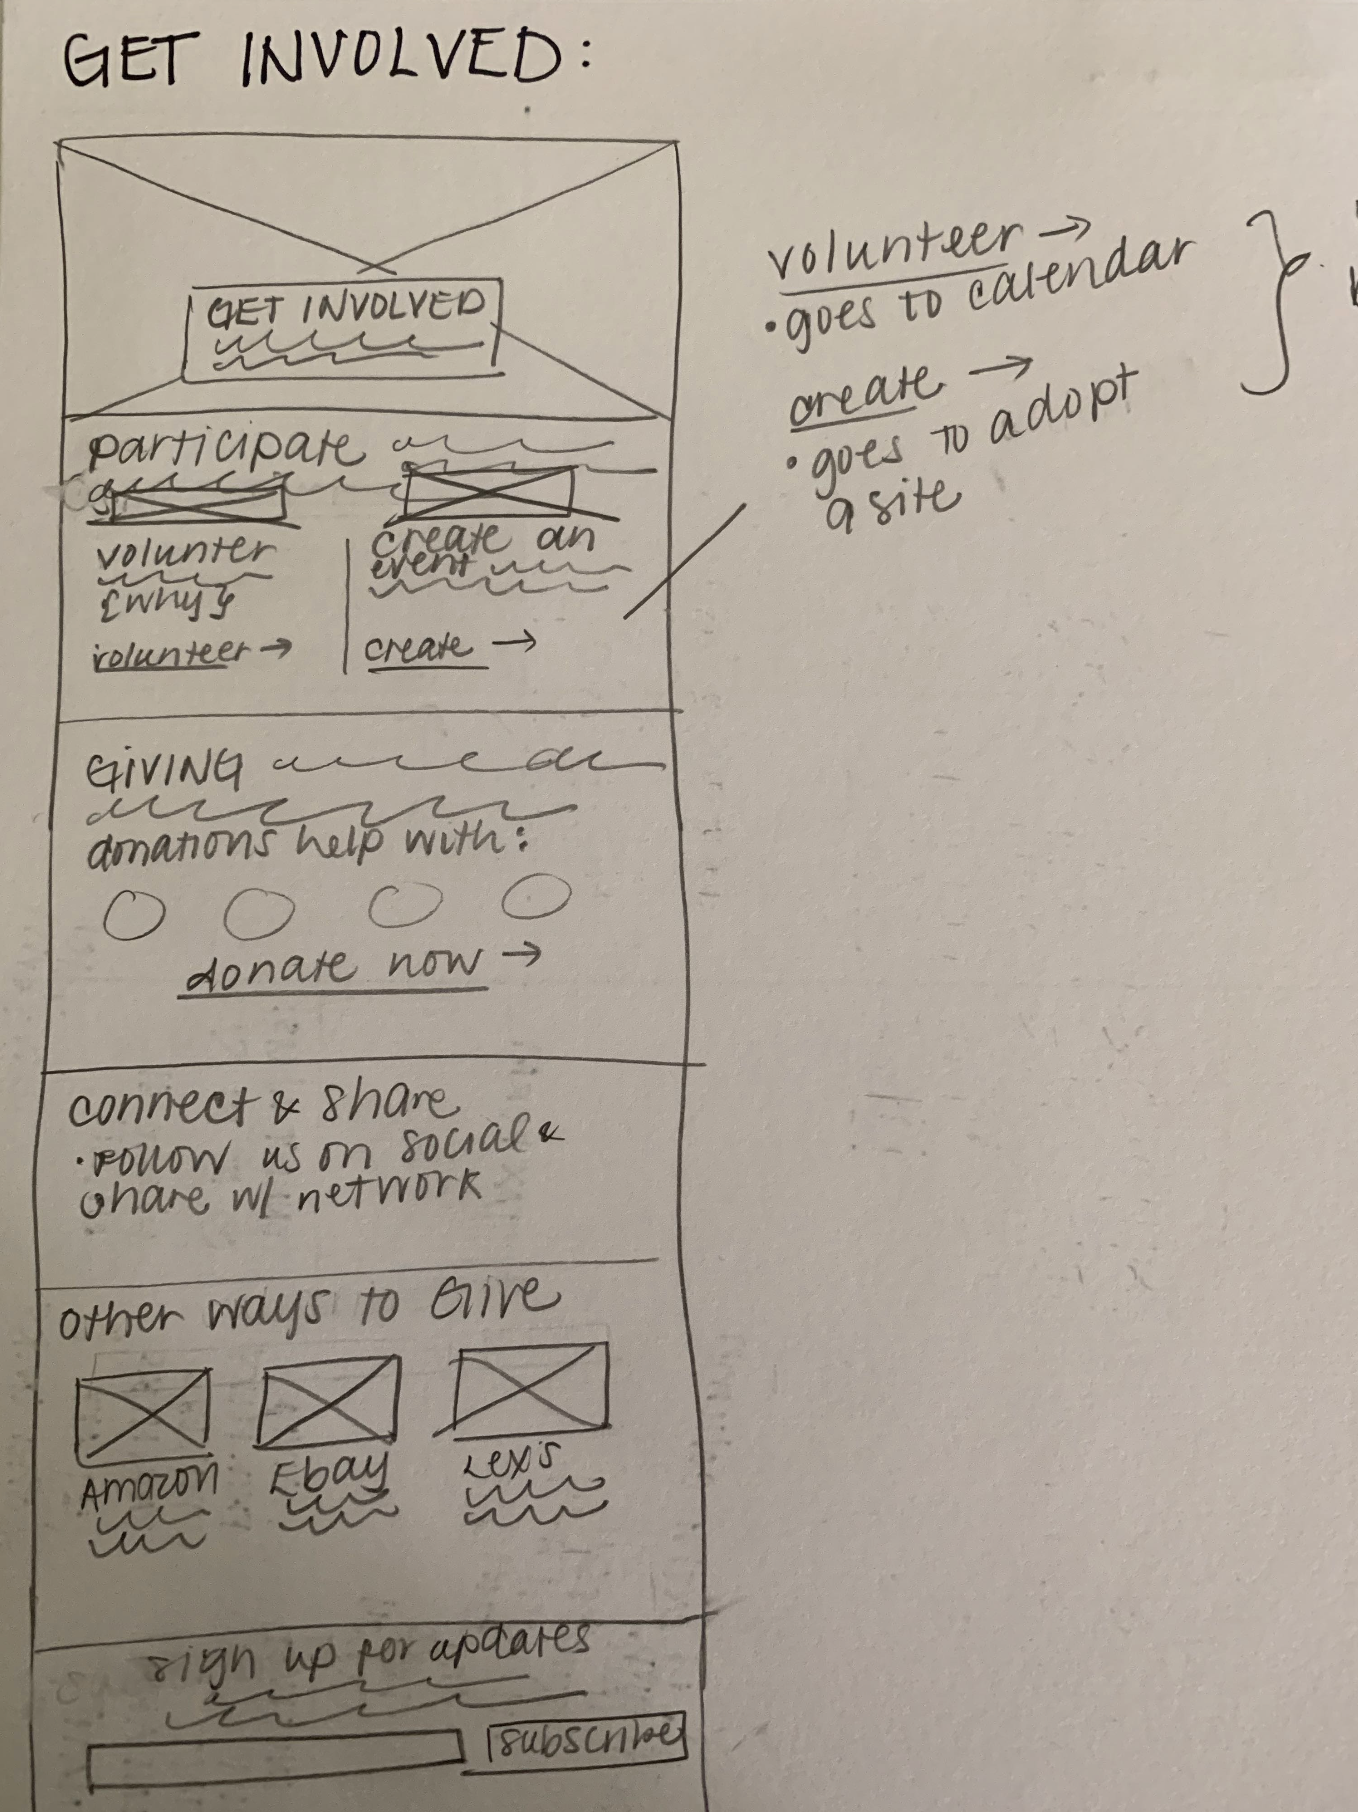 GET INVOLVED:
GET INVOLVED
participate
volunter
{why}
volunteer →
create an
event
create →
volunteer →
• goes to calendar
create →
• goes to adopt
a site
GIVING
donations help with:
donate now →
connect & share
• Follow us on social &
share w/ network
other ways to Give
Amazon
Ebay
Lexis
sign up for updates
subscribe